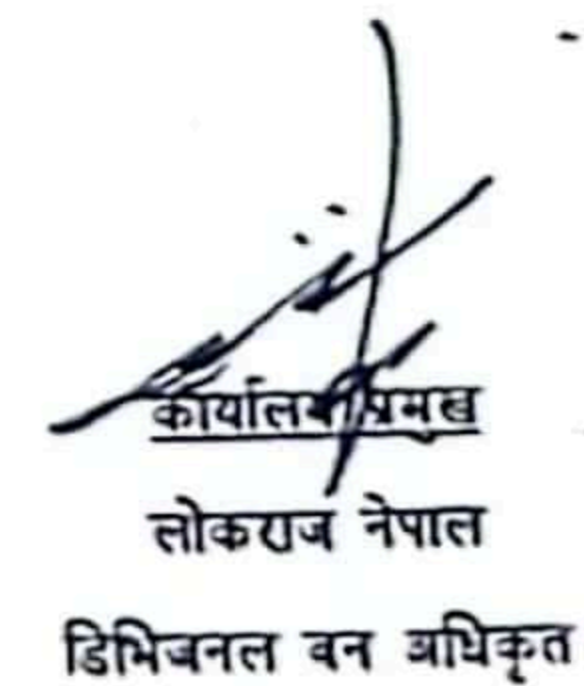 कार्यालय प्रमुख
लोकराज नेपाल
डिभिजनल वन अधिकृत